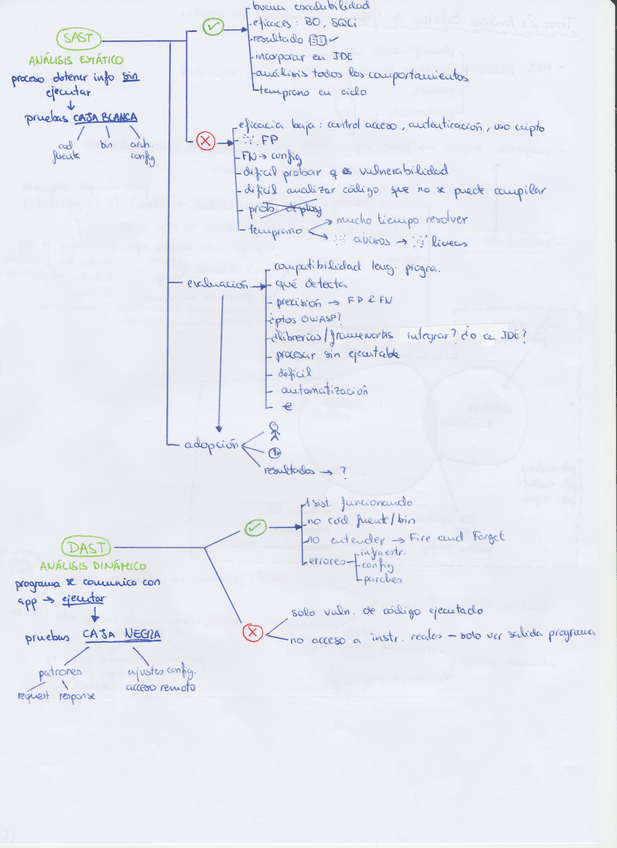 SAST
ANÁLISIS ESTÁTICO
proceso obtener info sin
ejecutar
pruebas CAJA BLANCA
cod fuente
bin
arch. config
buena escalabilidad
eficaces: BO, SQLi
resultado
incorporar en IDE
análisis todos los comportamientos
temprano en ciclo
eficacia baja: control acceso, autenticación, uso cripto
FP
FN → config
difícil probar q es vulnerabilidad
difícil analizar código que no se puede compilar
prob. deploy
temprano
mucho tiempo resolver
avisos → líneas
evaluación
compatibilidad leng. progra.
qué detecta
precisión → FP & FN
¿ptos OWASP?
¿librerías/frameworks integrar? ¿o en IDE?
procesar sin ejecutable
difícil
automatización
€
adopción
resultados → ?
DAST
ANÁLISIS DINÁMICO
programa se comunica con
app → ejecutar
pruebas CAJA NEGRA
patrones
request response
ajustes config.
acceso remoto
1 sist. funcionando
no cod fuente/bin
no entender → Fire and Forget
errores
infraestr.
config
parches
solo vuln. de código ejecutado
no acceso a instr. reales – solo ver salida programa